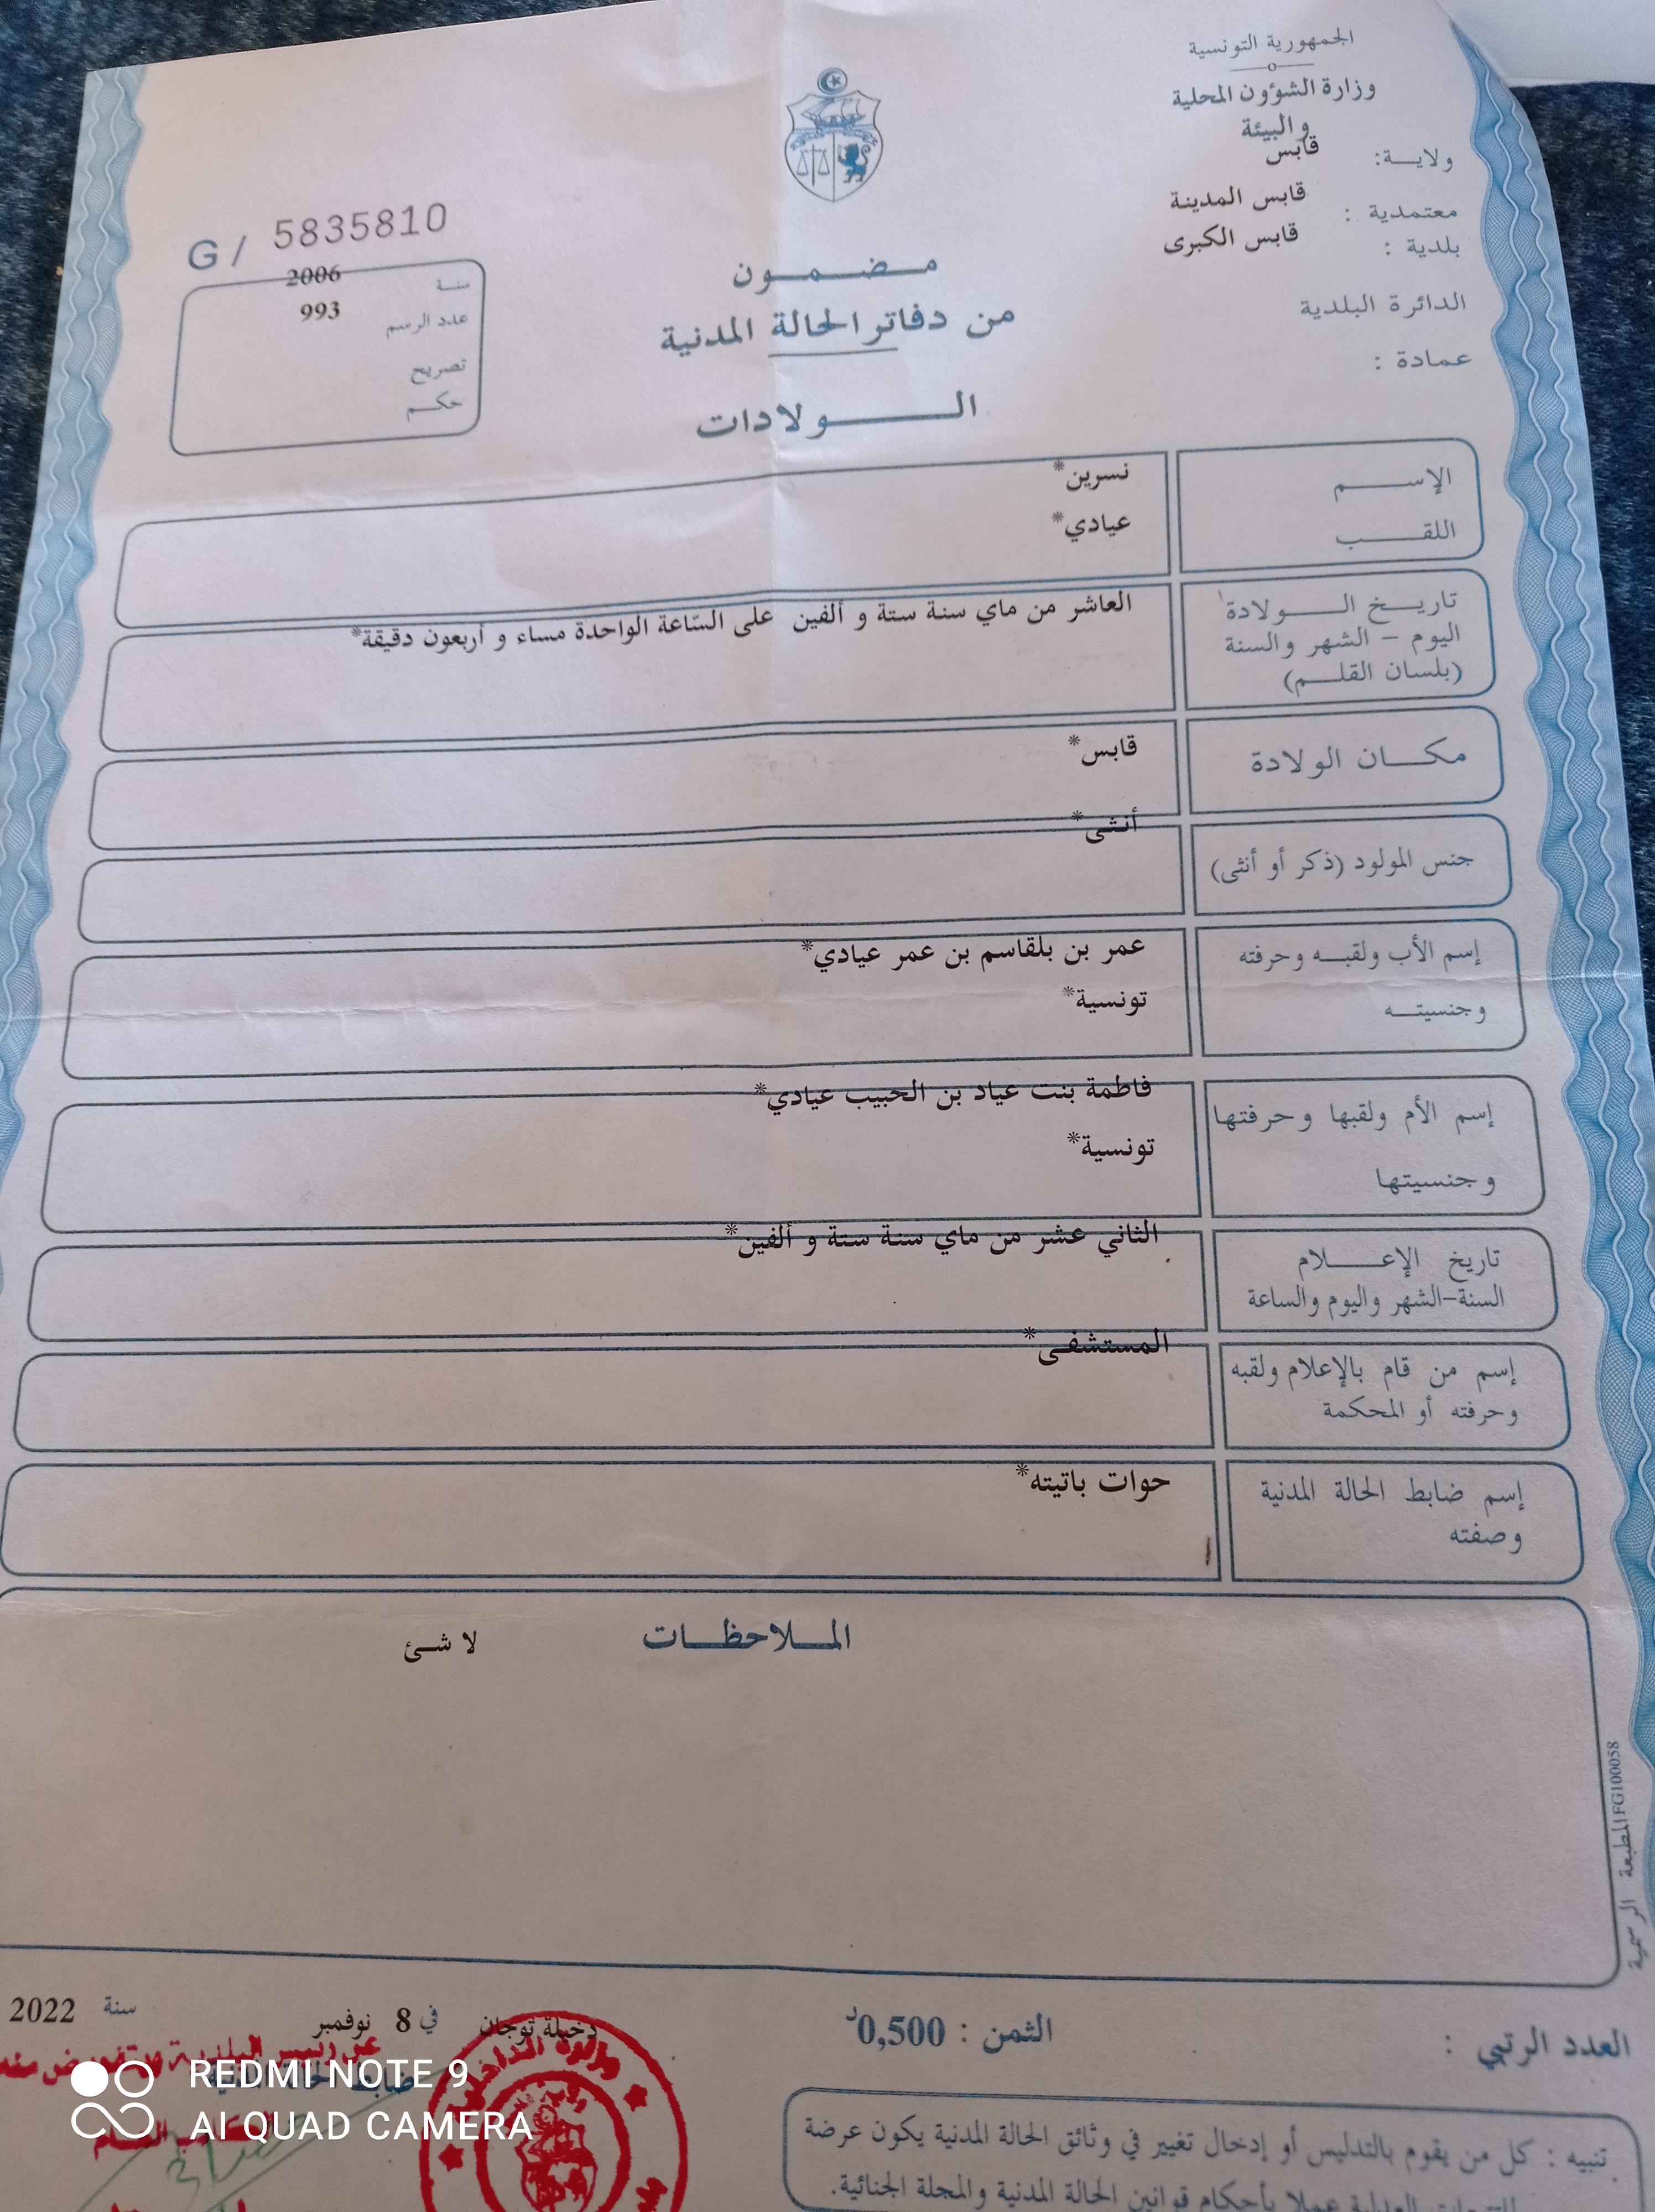 الجمهورية التونسية
وزارة الشؤون المحلية
والبيئة
ولاية: قابس
معتمدية : قابس المدينة
بلدية : قابس الكبرى
الدائرة البلدية
عمادة :
G / 5835810
سنة 2006
عدد الرسم 993
تصريح
حكم
مضمون
من دفاتر الحالة المدنية
الولادات
الإسم نسرين*
اللقب عيادي*
تاريخ الولادة العاشر من ماي سنة ستة و ألفين على السّاعة الواحدة مساء و أربعون دقيقة*
اليوم - الشهر والسنة
(بلسان القلم)
مكان الولادة قابس*
جنس المولود (ذكر أو أنثى) أنثى*
إسم الأب ولقبه وحرفته عمر بن بلقاسم بن عمر عيادي*
وجنسيته تونسية*
إسم الأم ولقبها وحرفتها فاطمة بنت عياد بن الحبيب عيادي*
وجنسيتها تونسية*
تاريخ الإعلام الثاني عشر من ماي سنة ستة و ألفين*
السنة-الشهر واليوم والساعة
إسم من قام بالإعلام ولقبه المستشفى*
وحرفته أو المحكمة
إسم ضابط الحالة المدنية حوات باتيته*
وصفته
الملاحظات لا شئ
المطبعة الرسمية FG100058
العدد الرتبي :
الثمن : 0,500د
دخيلة توجان في 8 نوفمبر سنة 2022
عن رئيس البلدية
وزارة الداخلية
تنبيه : كل من يقوم بالتدليس أو إدخال تغيير في وثائق الحالة المدنية يكون عرضة
العدلية عملا بأحكام قوانين الحالة المدنية والمجلة الجنائية.
REDMI NOTE 9
AI QUAD CAMERA